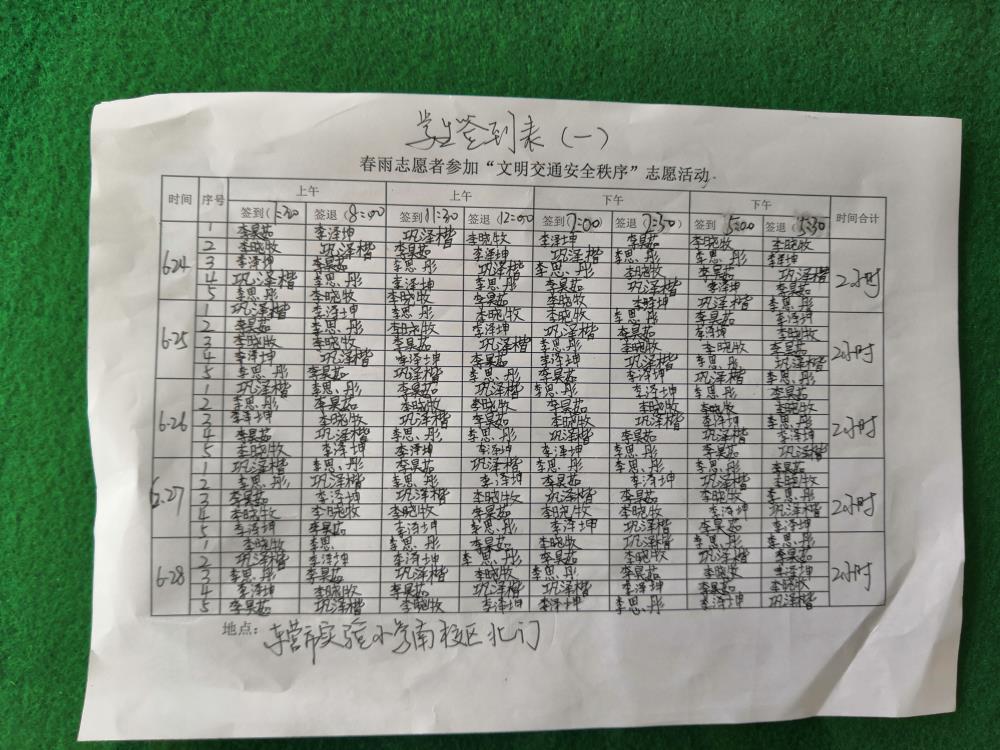 学生签到表（一）
春雨志愿者参加“文明交通安全秩序”志愿活动.
时间 序号 上午 上午 下午 下午 时间合计
签到( 1:30 签退（8:00 签到11:30 签退（12:00 签到(7:00 签退（7:50 签到 5:00 签退（5:30
6.24 2小时
1 李昊茹 李泽坤 巩泽楷 李晓牧 李泽坤 李昊茹 李晓牧 李晓牧
2 李晓牧 巩泽楷 李昊茹 李泽坤 巩泽楷 李思彤 李思彤 李泽坤
3 李泽坤 李昊茹 李思彤 巩泽楷 李思彤 李晓牧 李昊茹 巩泽楷
4 巩泽楷 李思彤 李泽坤 李思彤 李昊茹 巩泽楷 李泽坤 李昊茹
5 李思彤 李晓牧 李晓牧 李昊茹 李晓牧 李泽坤 巩泽楷 李思彤
6.25 2小时
1 巩泽楷 李泽坤 李思彤 李晓牧 李晓牧 李思彤 李昊茹 李泽坤
2 李昊茹 李思彤 李晓牧 李泽坤 巩泽楷 李昊茹 李泽坤 李晓牧
3 李晓牧 李晓牧 李昊茹 巩泽楷 李思彤 李晓牧 李晓牧 李昊茹
4 李泽坤 巩泽楷 李泽坤 李昊茹 李泽坤 巩泽楷 李思彤 巩泽楷
5 李思彤 李昊茹 巩泽楷 李思彤 李昊茹 李泽坤 巩泽楷 李思彤
6.26 2小时
1 巩泽楷 李思彤 李昊茹 巩泽楷 李思彤 李泽坤 李思彤 李昊茹
2 李思彤 李昊茹 李晓牧 李晓牧 李昊茹 李晓牧 李晓牧 李晓牧
3 李泽坤 李晓牧 巩泽楷 李昊茹 李晓牧 巩泽楷 李泽坤 李思彤
4 李昊茹 巩泽楷 李思彤 李思彤 巩泽楷 李昊茹 巩泽楷 李泽坤
5 李晓牧 李泽坤 李泽坤 李泽坤 李泽坤 李思彤 李昊茹 巩泽楷
6.27 2小时
1 巩泽楷 李思彤 李昊茹 巩泽楷 李思彤 李思彤 李思彤 李昊茹
2 李思彤 巩泽楷 李思彤 李泽坤 李昊茹 李泽坤 巩泽楷 李晓牧
3 李昊茹 李泽坤 巩泽楷 李晓牧 巩泽楷 李昊茹 李晓牧 李思彤
4 李晓牧 李晓牧 李晓牧 李昊茹 李晓牧 李晓牧 李泽坤 巩泽楷
5 李泽坤 李昊茹 李泽坤 李思彤 李泽坤 巩泽楷 李昊茹 李泽坤
6.28 2小时
1 李晓牧 李思 李思彤 李昊茹 巩泽楷 李思彤 李思彤 李思彤
2 巩泽楷 李泽坤 李泽坤 李思彤 李昊茹 李晓牧 巩泽楷 李昊茹
3 李思彤 李昊茹 巩泽楷 李晓牧 李思彤 李泽坤 李晓牧 李泽坤
4 李泽坤 李晓牧 李昊茹 巩泽楷 李晓牧 巩泽楷 李昊茹 李晓牧
5 李昊茹 巩泽楷 李晓牧 李泽坤 李泽坤 李思彤 李泽坤 巩泽楷
地点：东营市实验小学南校区北门